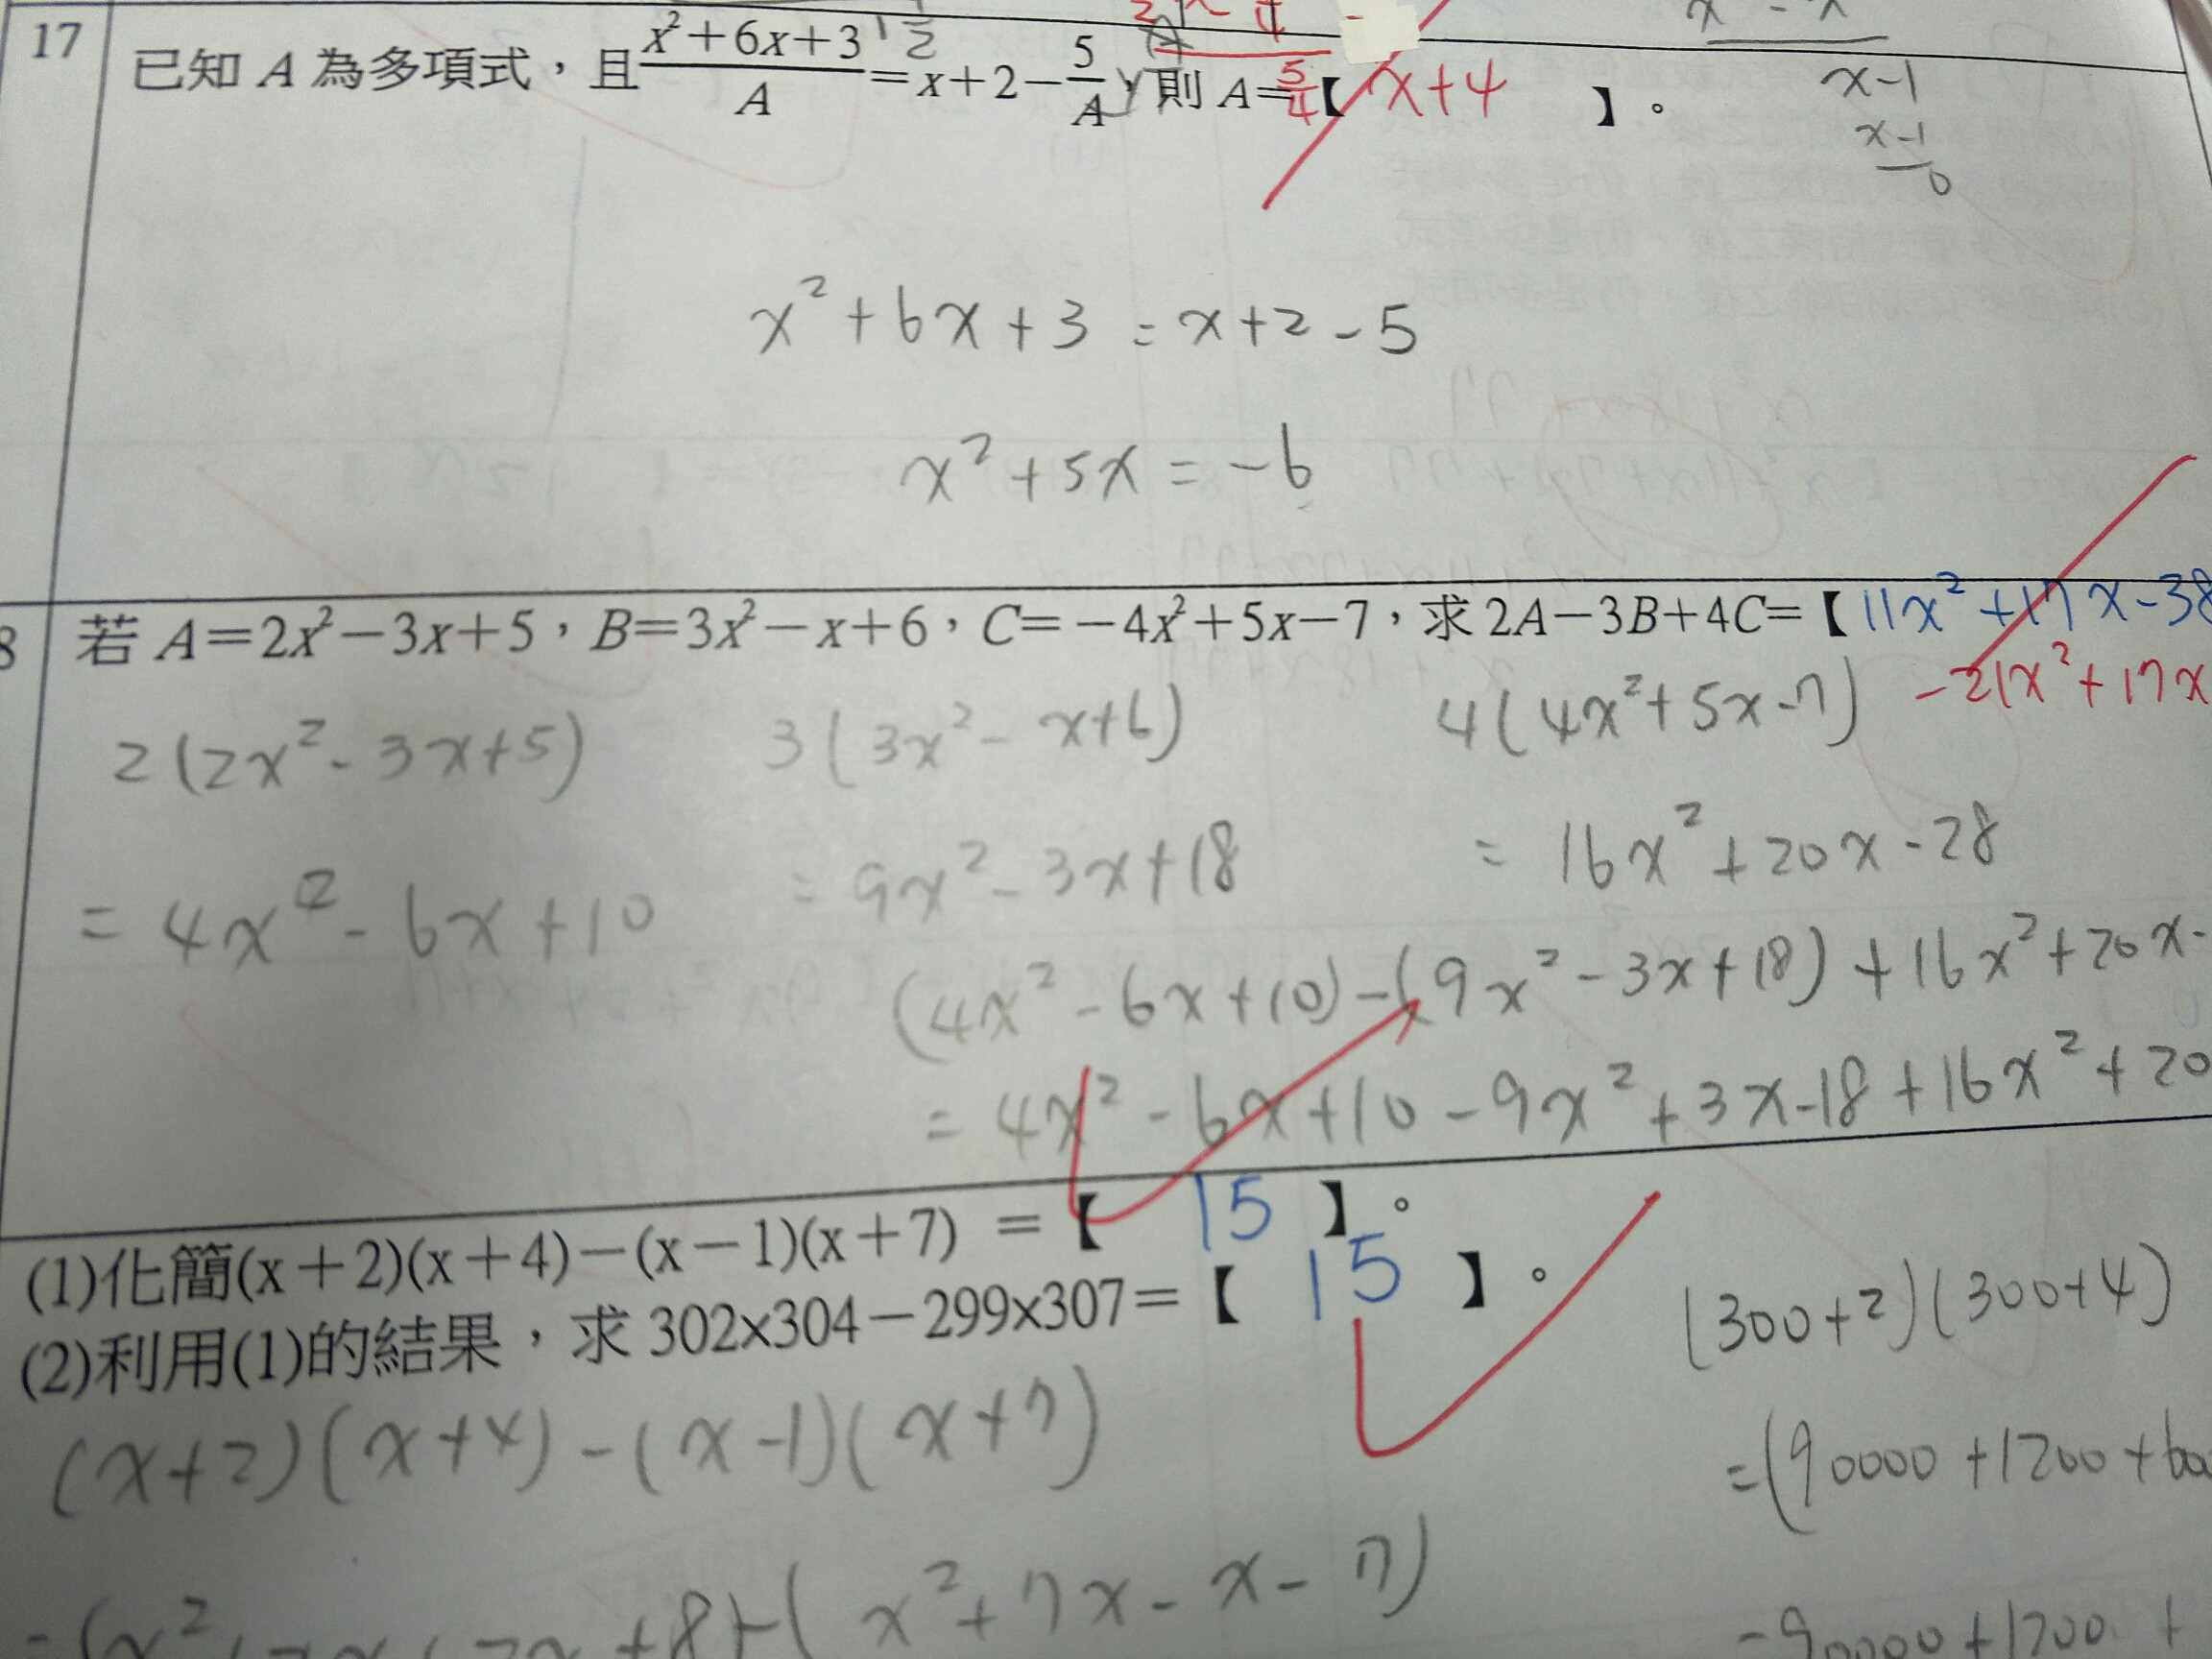 17 已知 A 為多項式，且 x²+6x+3/A = x+2−5/A，則 A=【 x+4 】。
5/4
x-1
x-1
0
x²+6x+3 = x+2-5
x²+5x = -6
8 若 A=2x²−3x+5，B=3x²−x+6，C=−4x²+5x−7，求 2A−3B+4C=【 11x²+17x-38
-21x²+17x
2(2x²-3x+5) 3(3x²-x+6) 4(4x²+5x-7)
= 4x²-6x+10 = 9x²-3x+18 = 16x²+20x-28
(4x²-6x+10)-(9x²-3x+18)+16x²+20x-
= 4x²-6x+10-9x²+3x-18+16x²+20
(1)化簡(x+2)(x+4)−(x−1)(x+7) =【 15 】。
(2)利用(1)的結果，求 302x304−299x307=【 15 】。
(300+2)(300+4)
(x+2)(x+4)-(x-1)(x+7)
=(90000+1200+600
+8)-(x²+7x-x-7)
-90000+1200 +